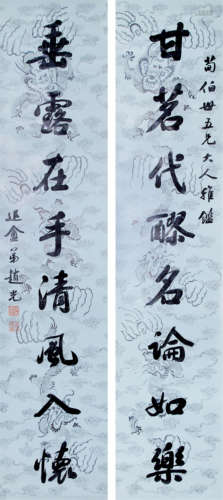 荀伯世五兄大人雅鑑
甘茗代醪名論如樂
垂露在手清風入懷
退盦弟趙光